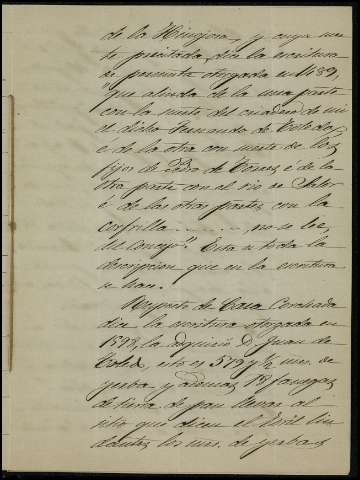 de la Hinojosa, y cuya suer-
te precitada, dice la escritura
de permuta otorgada en 1489,
"que alinda de la una parte
con la suerte del criadero de mi
el dicho Fernando de Toledo,
e de la otra con suerte de los
fijos de Pedro de Torres é de la
otra parte con el rio de Salor
é de las otras partes con la
........, no se lee,
del Concejo". Esta es toda la
descripcion que en la escritura
se hace.
Respecto de Casa Corchada
dice la escritura otorgada en
1598, la adquirió D. Juan de
Toledo, esto es 579 y ½ mrs. de
yerba y ademas 18 fanegas
de tierra de pan llevar al
sitio que dicen el Toril lin
dantes los mrs. de yerba